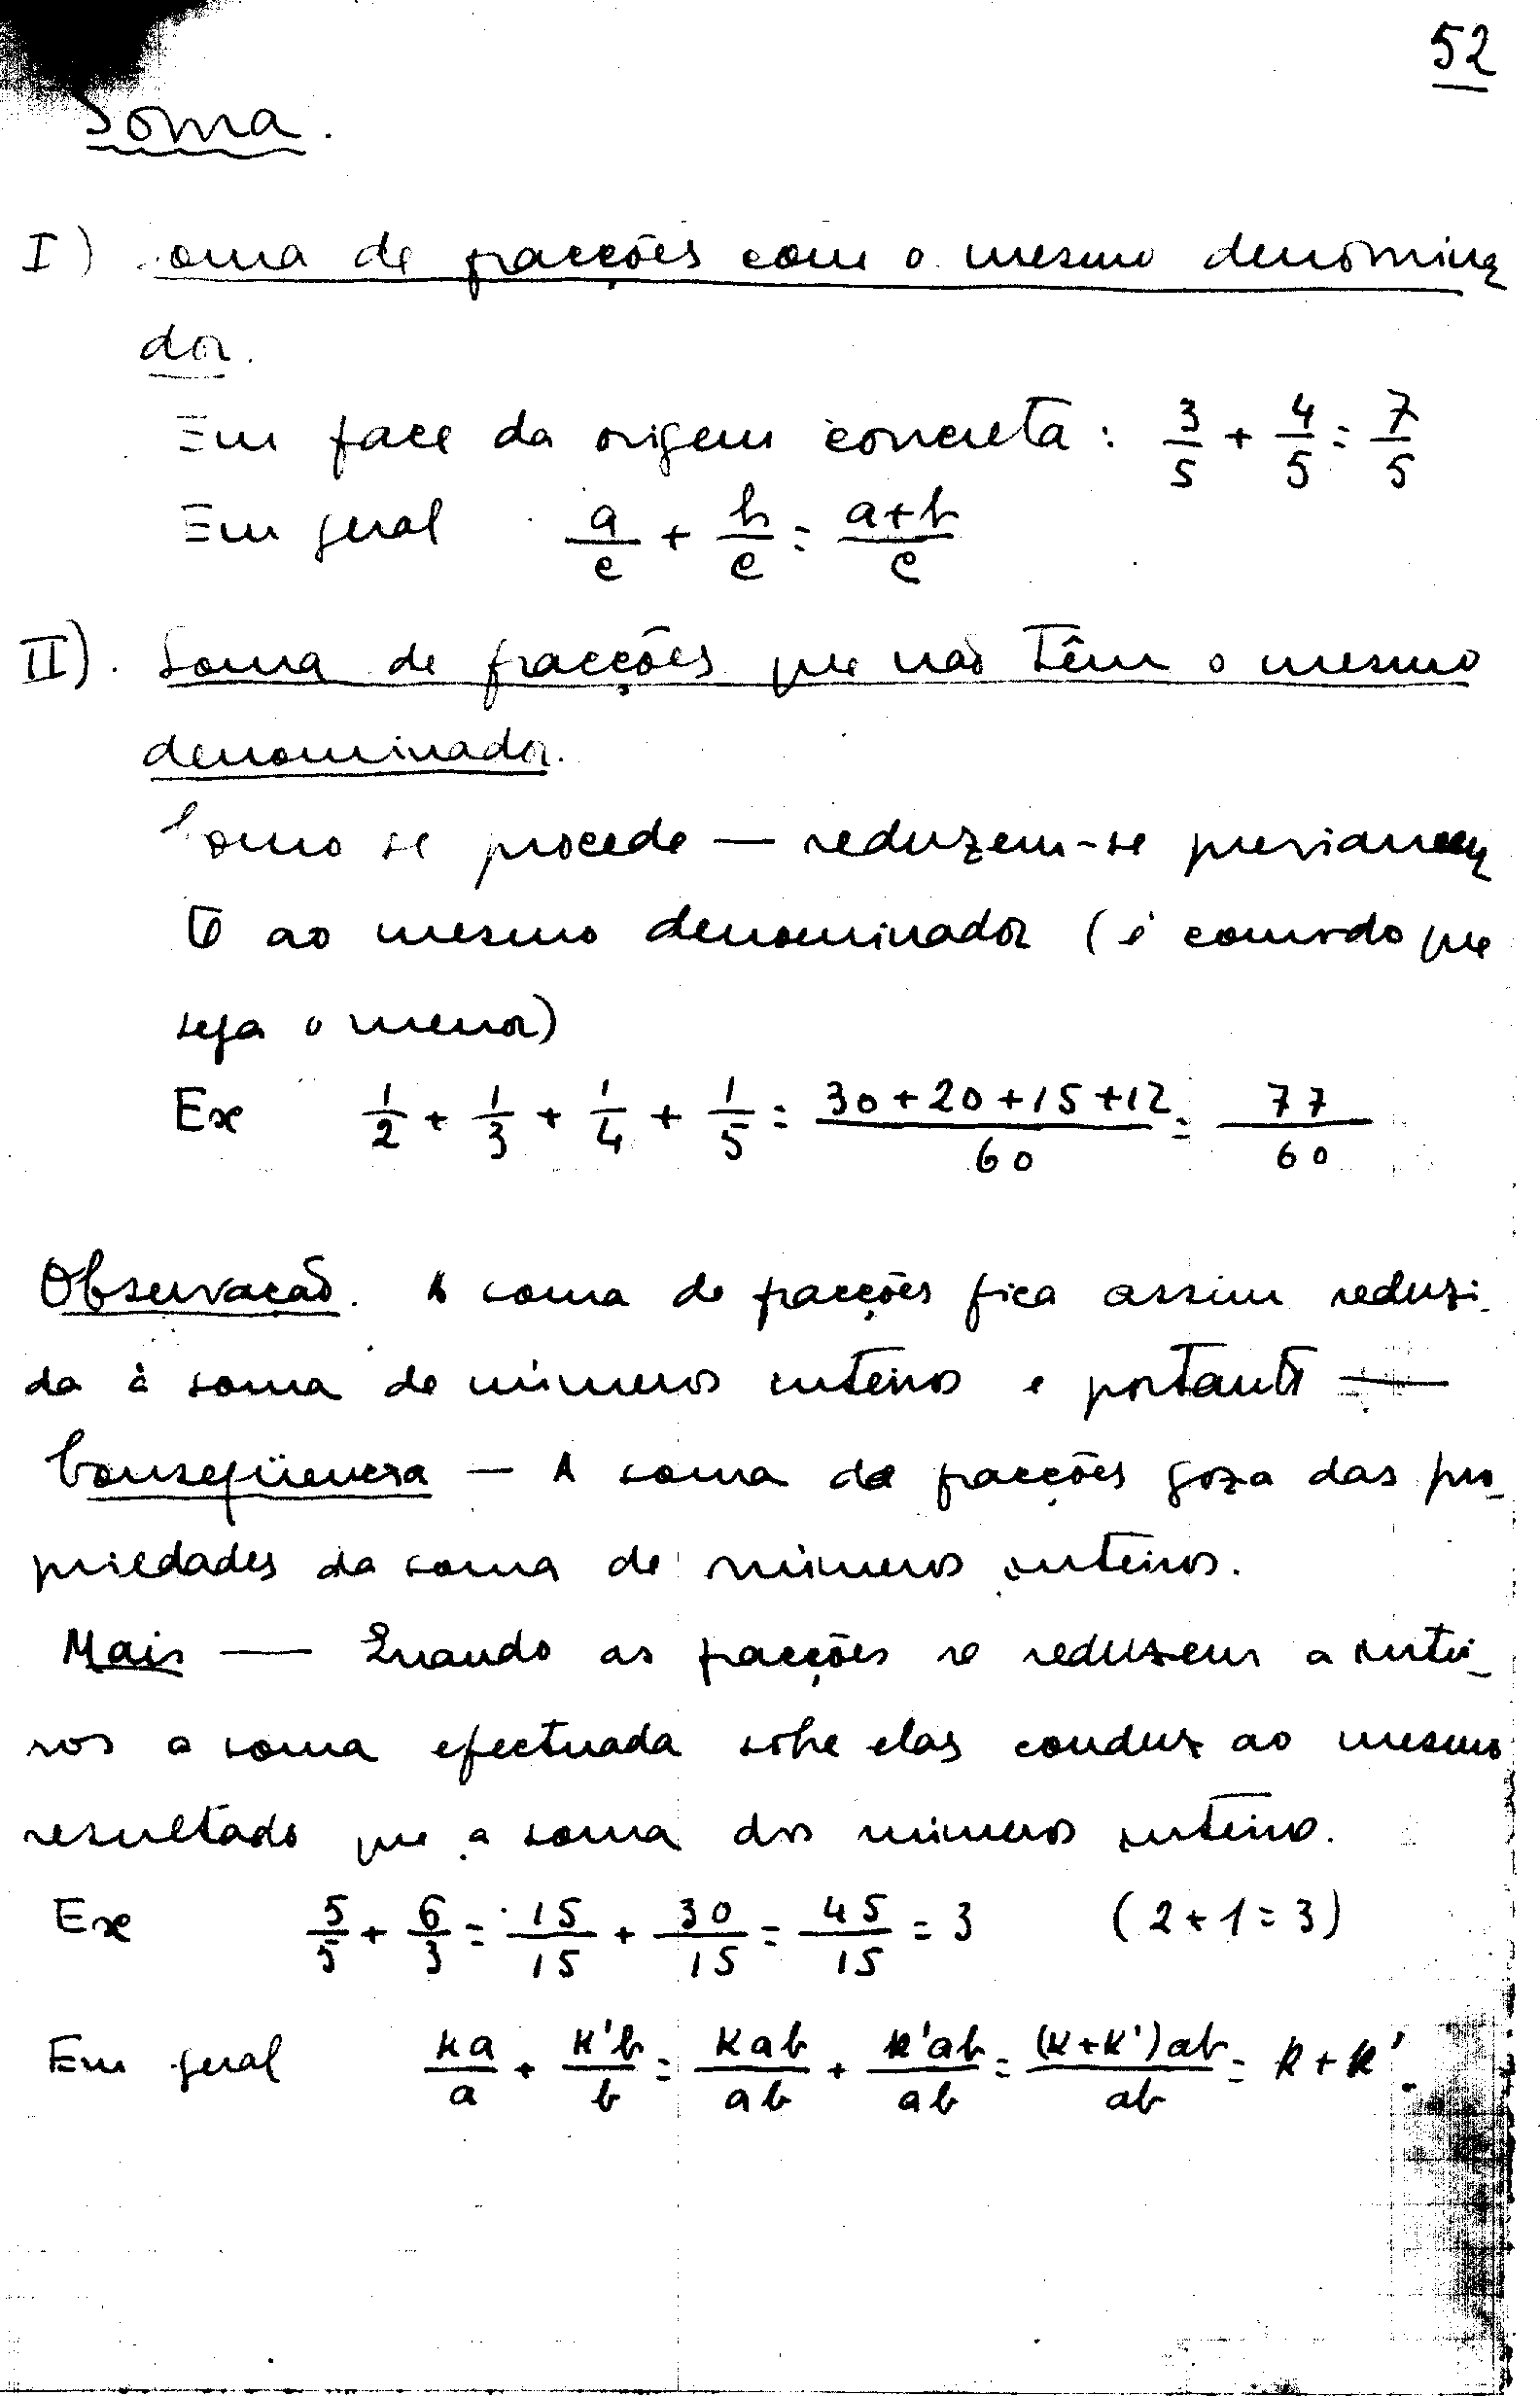 52
Soma.
I) Soma de fracções com o mesmo denomina
dor.
Em face da origem concreta: 3/5 + 4/5 = 7/5
Em geral a/c + b/c = a+b/c
II). Soma de fracções que não têm o mesmo
denominador.
Como se procede — reduzem-se previamen
te ao mesmo denominador (é comodo que
seja o menor)
Ex 1/2 + 1/3 + 1/4 + 1/5 = 30+20+15+12/60 = 77/60
Observação. A soma de fracções fica assim reduzi-
da à soma de números inteiros e portanto —
Conseqüencia — A soma de fracções goza das pro-
priedades da soma de números inteiros.
Mais — Quando as fracções se reduzem a intei-
ros a soma efectuada sobre elas conduz ao mesmo
resultado que a soma dos números inteiros.
Ex 5/5 + 6/3 = 15/15 + 30/15 = 45/15 = 3 (2+1=3)
Em geral ka/a + k'b/b = kab/ab + k'ab/ab = (k+k')ab/ab = k+k'.